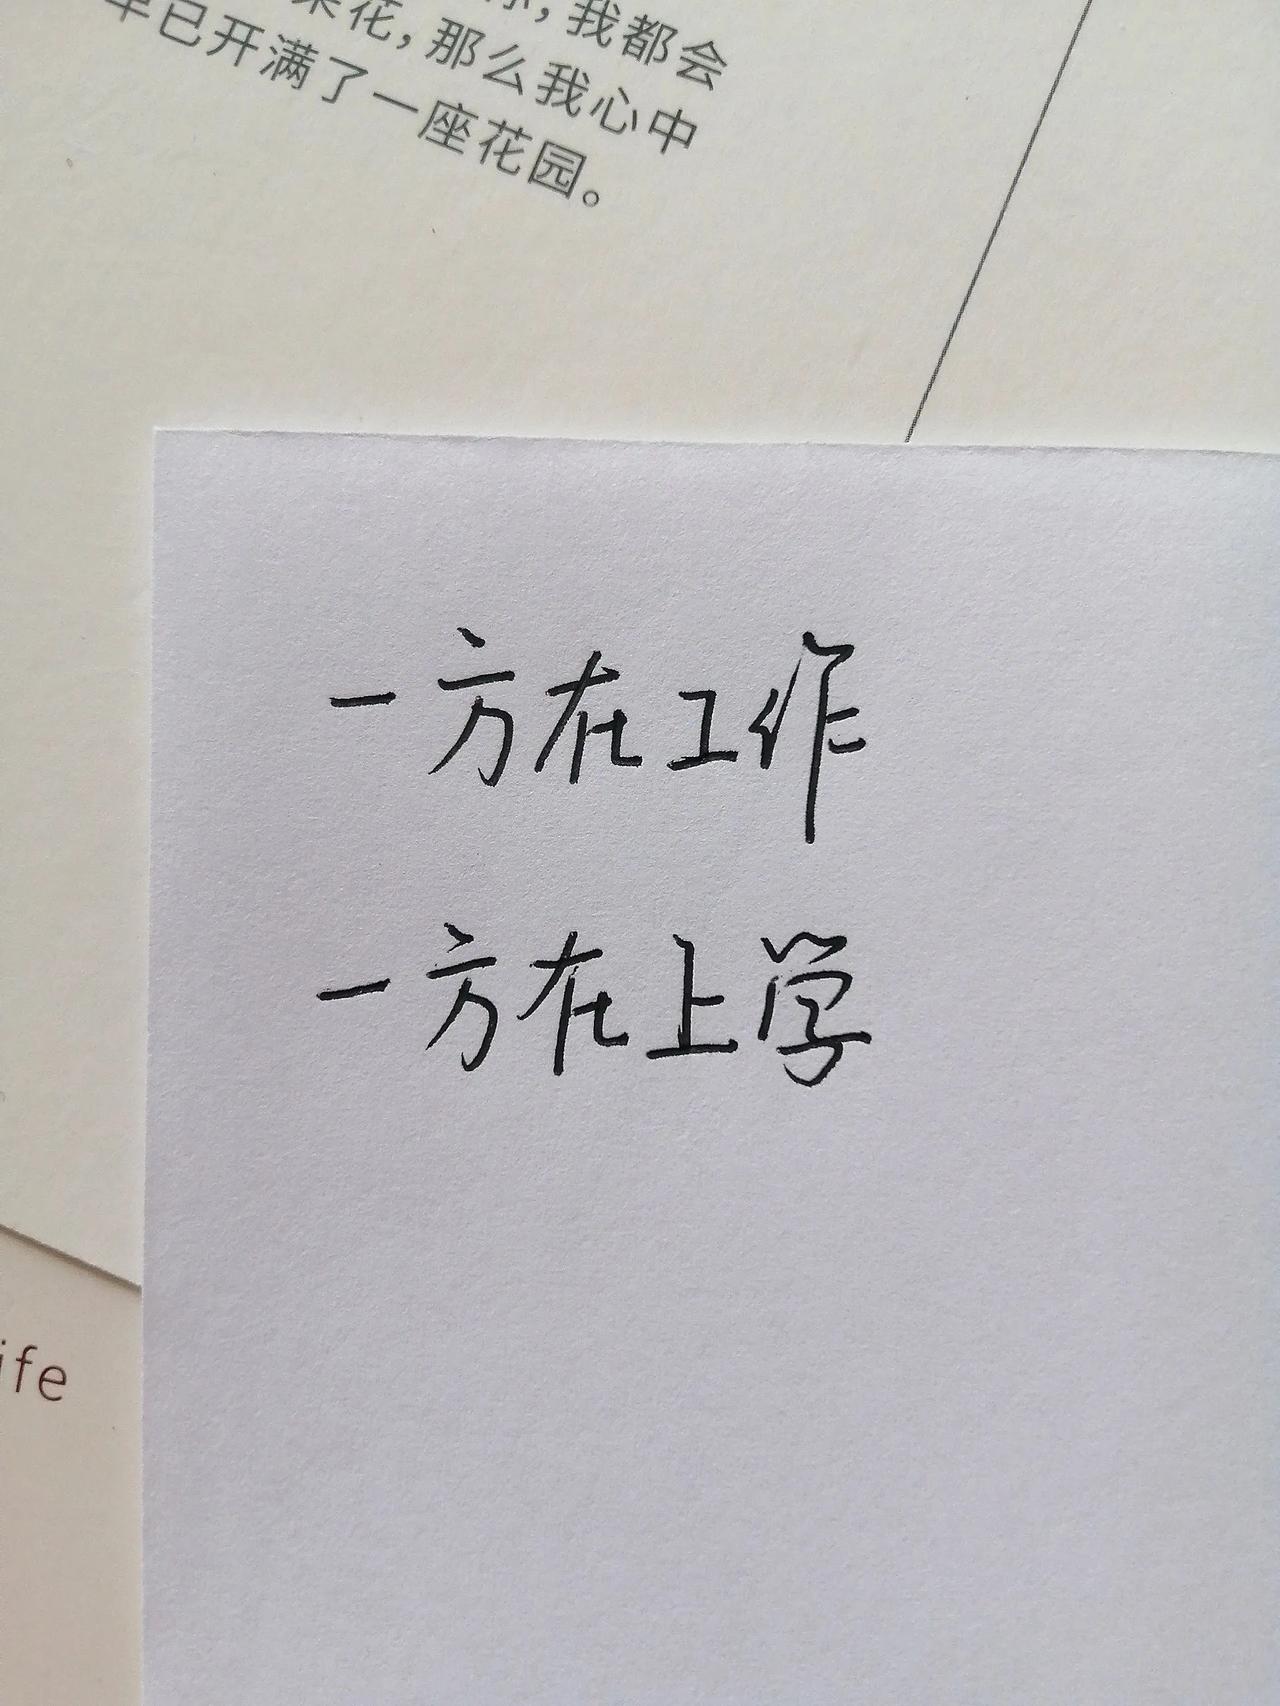 你,我都会
朵花,那么我心中
早已开满了一座花园。
一方在工作
一方在上学
ife